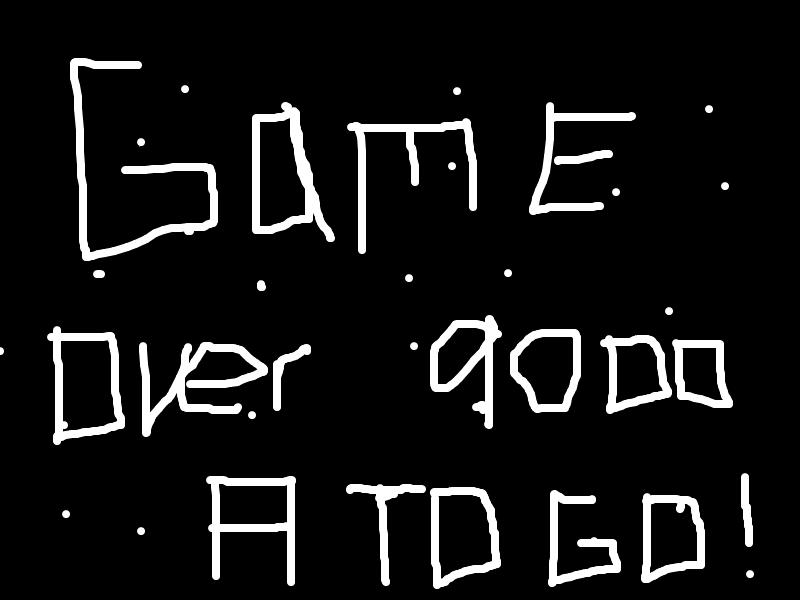 GaME
over 9000
A TO GO!